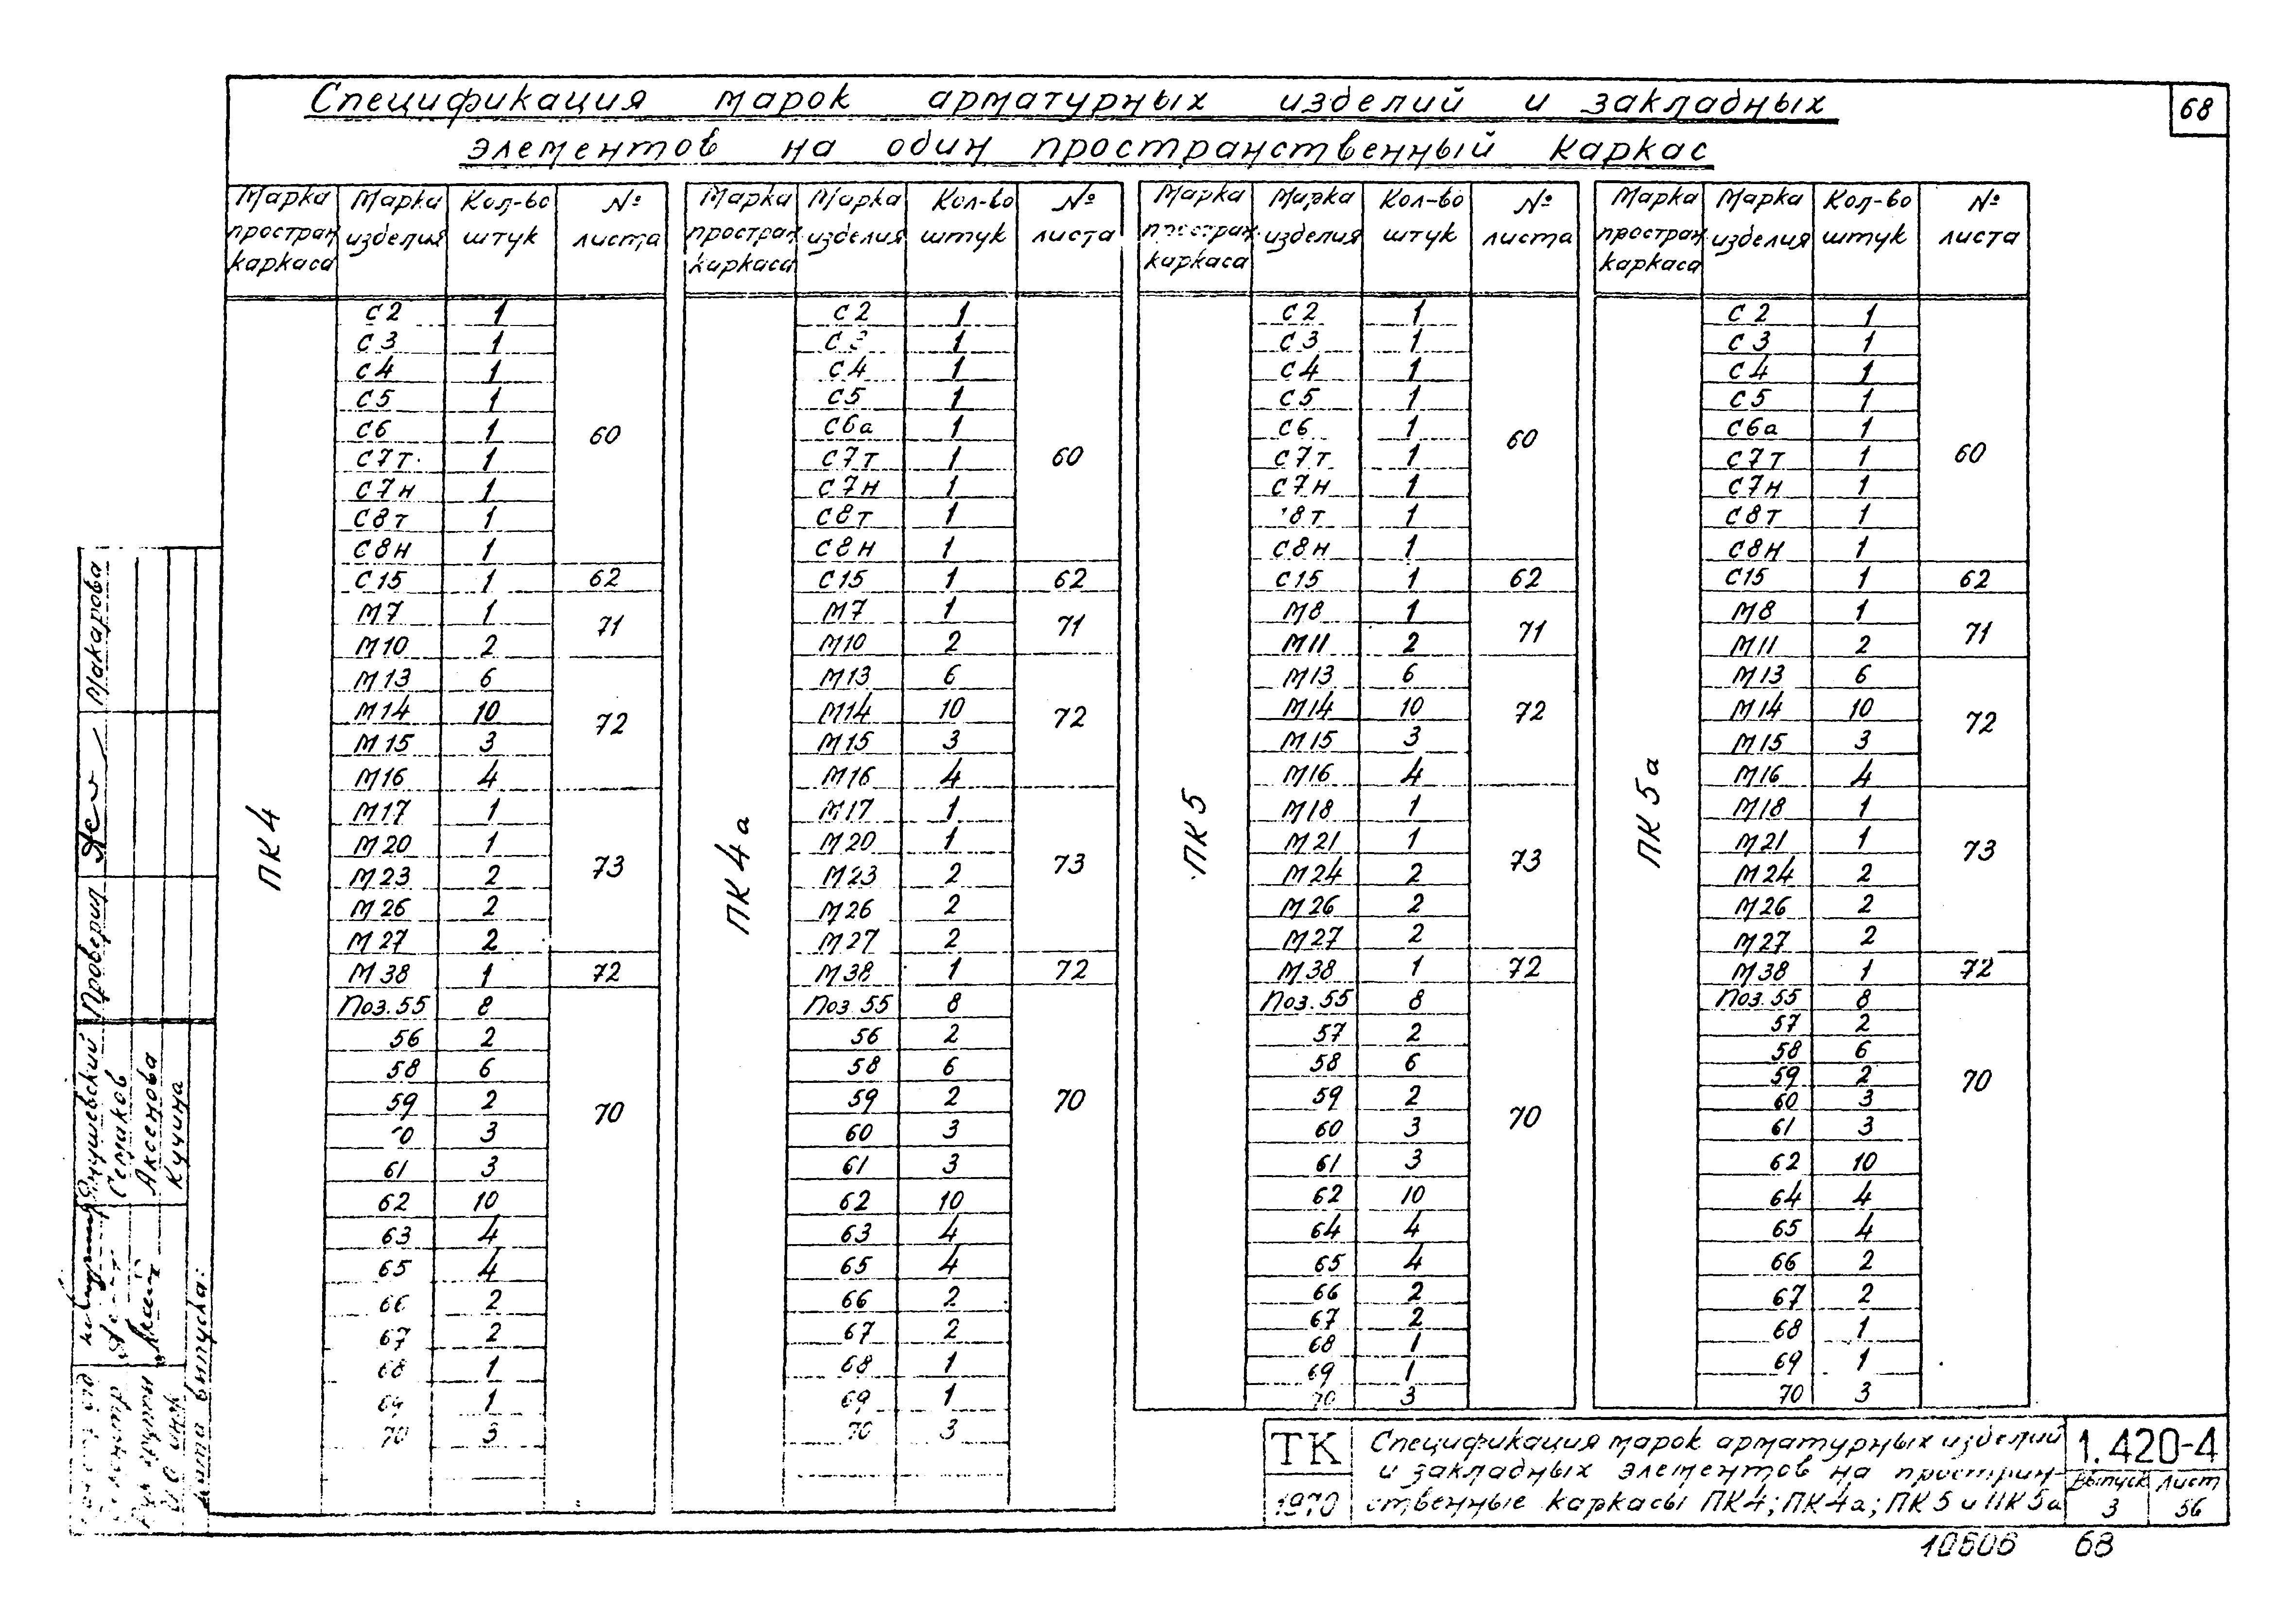 68
Спецификация марок арматурных изделий и закладных
элементов на один пространственный каркас
Марка простран каркаса | Марка изделия | Кол-во штук | № листа
ПК4
С2 1
С3 1
С4 1
С5 1
С6 1
С7т 1
С7н 1
С8т 1
С8н 1
60
С15 1 62
М7 1
М10 2
71
М13 6
М14 10
М15 3
М16 4
72
М17 1
М20 1
М23 2
М26 2
М27 2
73
М38 1 72
Поз.55 8
56 2
58 6
59 2
0 3
61 3
62 10
63 4
65 4
66 2
67 2
68 1
69 1
70 3
70
Марка простран каркаса | Марка изделия | Кол-во штук | № листа
ПК4а
С2 1
С3 1
С4 1
С5 1
С6а 1
С7т 1
С7н 1
С8т 1
С8н 1
60
С15 1 62
М7 1
М10 2
71
М13 6
М14 10
М15 3
М16 4
72
М17 1
М20 1
М23 2
М26 2
М27 2
73
М38 1 72
Поз.55 8
56 2
58 6
59 2
60 3
61 3
62 10
63 4
65 4
66 2
67 2
68 1
69 1
70 3
70
Марка простран каркаса | Марка изделия | Кол-во штук | № листа
ПК5
С2 1
С3 1
С4 1
С5 1
С6 1
С7т 1
С7н 1
8т 1
С8н 1
60
С15 1 62
М8 1
М11 2
71
М13 6
М14 10
М15 3
М16 4
72
М18 1
М21 1
М24 2
М26 2
М27 2
73
М38 1 72
Поз.55 8
57 2
58 6
59 2
60 3
61 3
62 10
64 4
65 4
66 2
67 2
68 1
69 1
70 3
70
Марка простран каркаса | Марка изделия | Кол-во штук | № листа
ПК5а
С2 1
С3 1
С4 1
С5 1
С6а 1
С7т 1
С7н 1
С8т 1
С8н 1
60
С15 1 62
М8 1
М11 2
71
М13 6
М14 10
М15 3
М16 4
72
М18 1
М21 1
М24 2
М26 2
М27 2
73
М38 1 72
Поз.55 8
57 2
58 6
59 2
60 3
61 3
62 10
64 4
65 4
66 2
67 2
68 1
69 1
70 3
70
Проверил Макарова
Семаков
Аксенова
Кучина
выпуска:
ТК
1970
Спецификация марок арматурных изделий
и закладных элементов на простран-
ственные каркасы ПК4; ПК4а; ПК5 и ПК5а
1.420-4
Выпуск Лист
3 56
10606 68